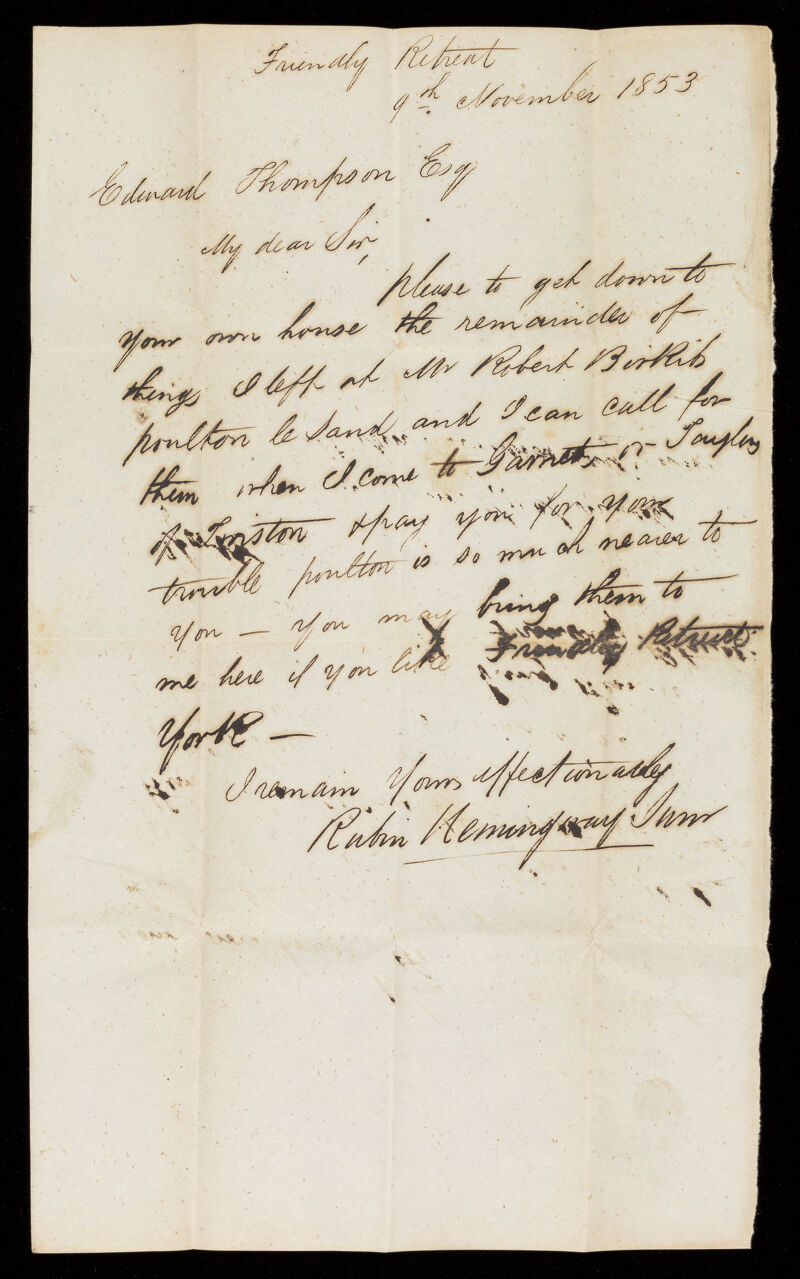 Friendly Retreat
9th November 1853
Edward Thompson Esq
My dear Sir,
please to get down to
your own house the remainder of
things I left at Mr Robert
poulton le Sand and I can call for
them when I come to Garnets or Taylors
of & pay you for your
trouble poulton is so much nearer to
you — you may bring them to
me here if you like Friendly Retreat
York —
I remain Yours affectionately
Rubin Hemingway Junr